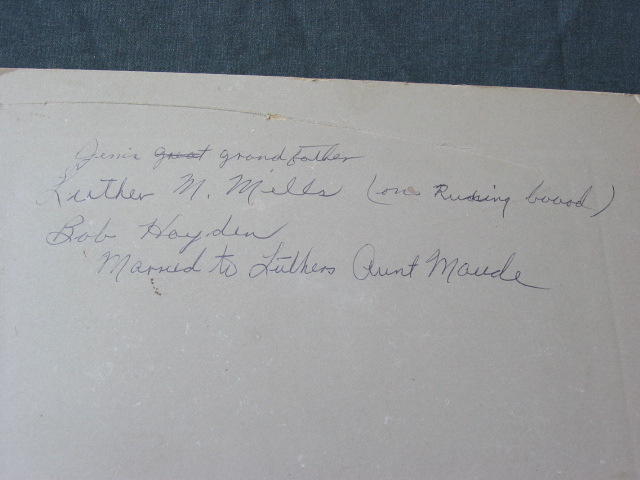 Jenis great grandfather
Luther M. Mills (on Running board)
Bob Hayden
Married to Luthers Aunt Maude